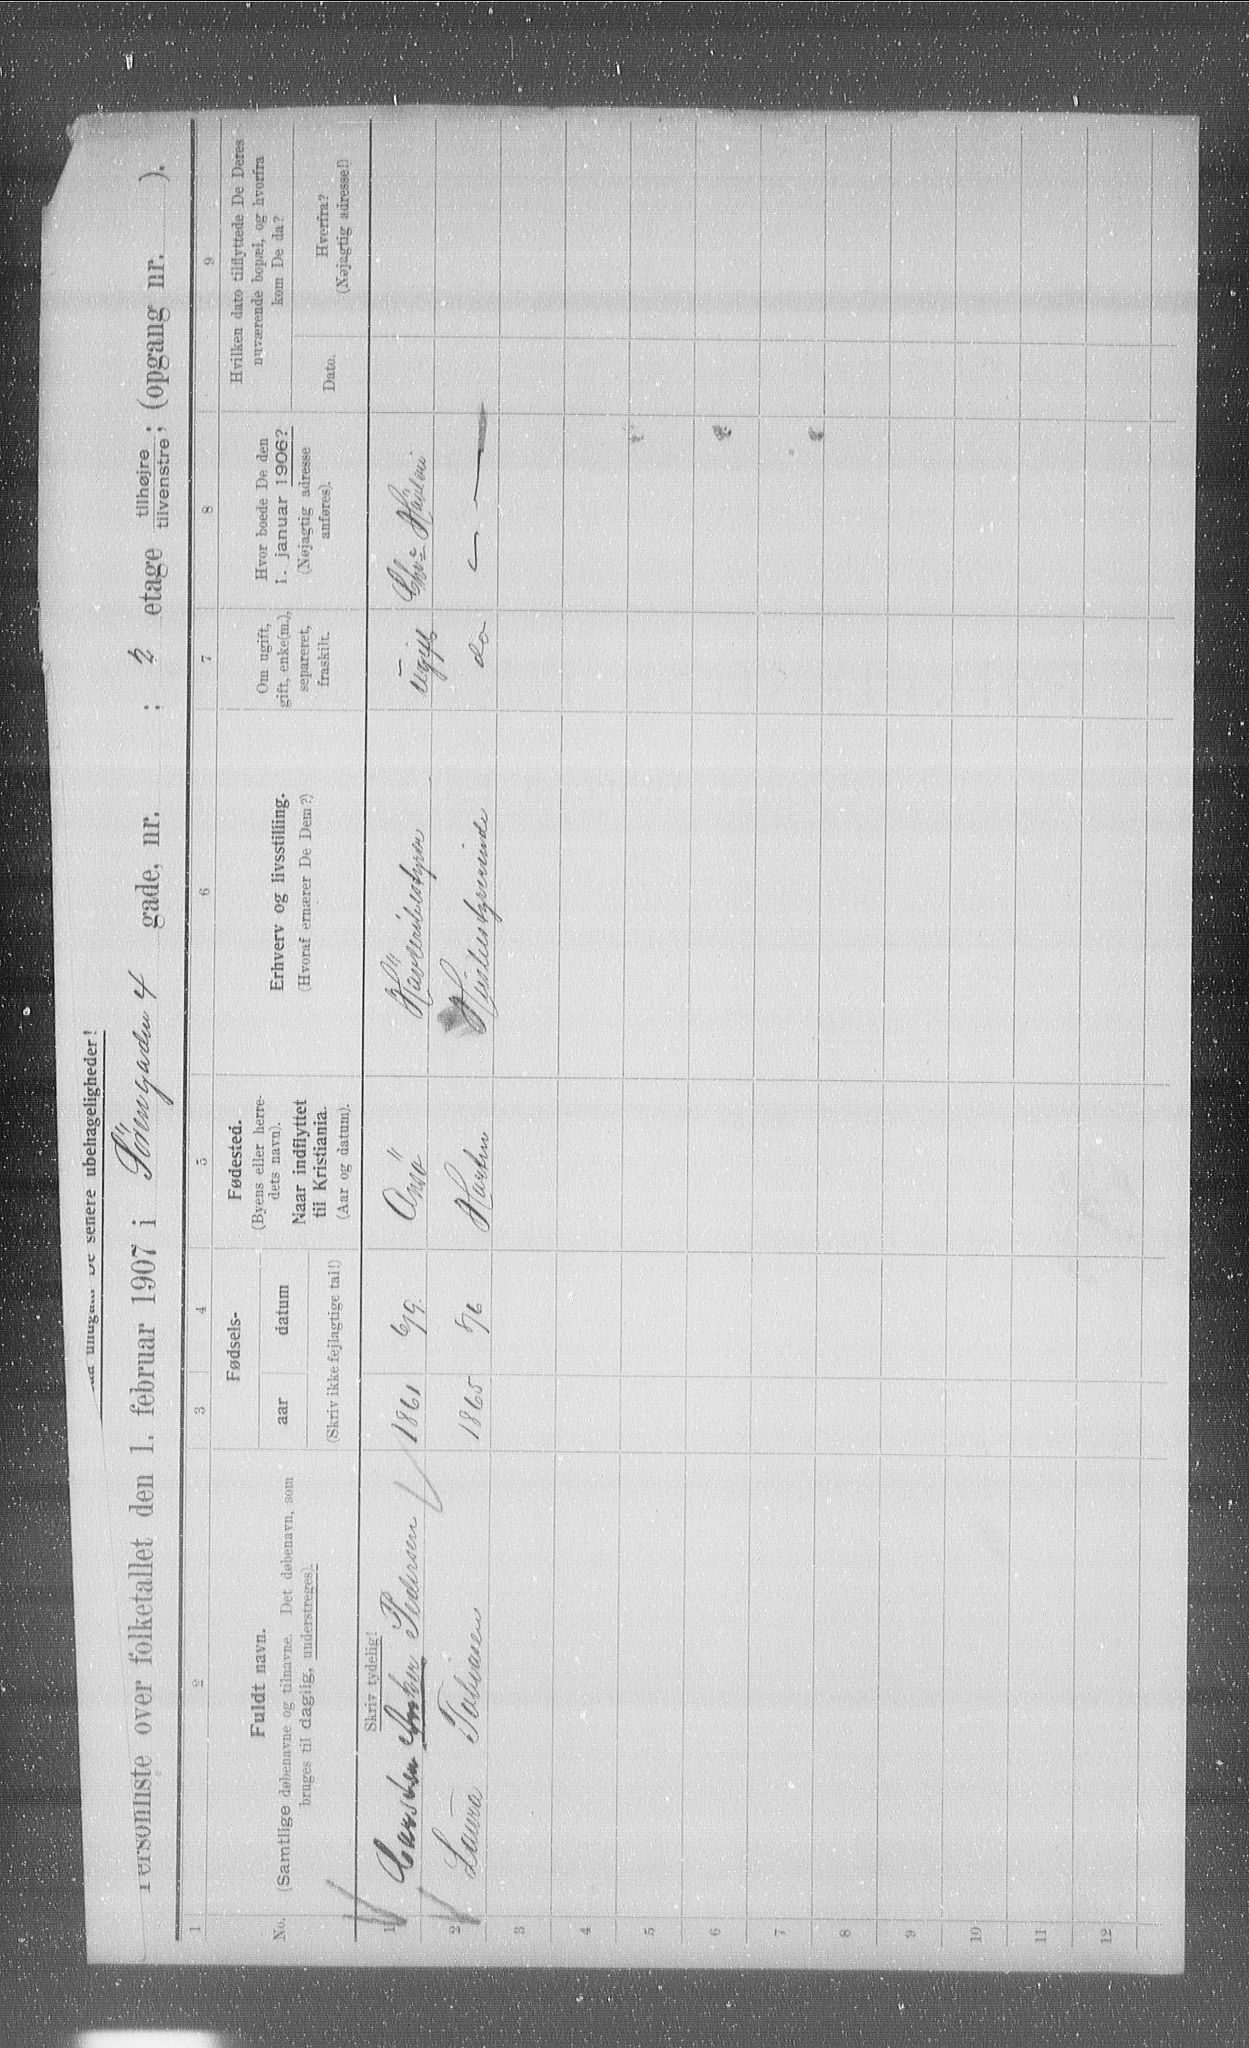 De senere ubehageligheder!
Personliste over folketallet den 1. februar 1907 i Sörengaden 4 gade, nr. ; 2 etage tilhøjre tilvenstre; (opgang nr. ).
1 2 3 4 5 6 7 8 9
No.
Fuldt navn.
(Samtlige døbenavne og tilnavne. Det døbenavn, som
bruges til daglig, understreges).
Skriv tydelig!
Fødsels-
aar datum
(Skriv ikke fejlagtige tal!)
Fødested.
(Byens eller herre-
dets navn).
Naar indflyttet
til Kristiania.
(Aar og datum).
Erhverv og livsstilling.
(Hvoraf ernærer De Dem?)
Om ugift,
gift, enke(m.),
separeret,
fraskilt.
Hvor boede De den
1. januar 1906?
(Nøjagtig adresse
anføres).
Hvilken dato tilflyttede De Deres
nuværende bopæl, og hvorfra
kom De da?
Dato.
Hvorfra?
(Nøjagtig adresse!)
1 Pedersen 1861 6/9 ugift
2 Laura Tobiasen 1865 5/6 Husbestyrerinde do
3
4
5
6
7
8
9
10
11
12